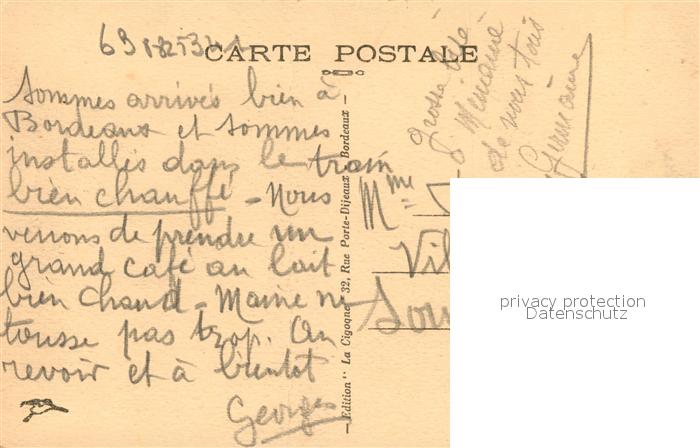 CARTE POSTALE
Sommes arrivés bien à
Bordeaux et sommes
installés dans le train
bien chauffé - Nous
venons de prendre un
grand café au lait
bien chaud - Maine ne
tousse pas trop. Au
revoir et à bientôt
Georges
de nous tous
Germaine
Mme
Vil
Edition " La Cigogne " 32, Rue Porte-Dijeaux - Bordeaux
privacy protection
Datenschutz